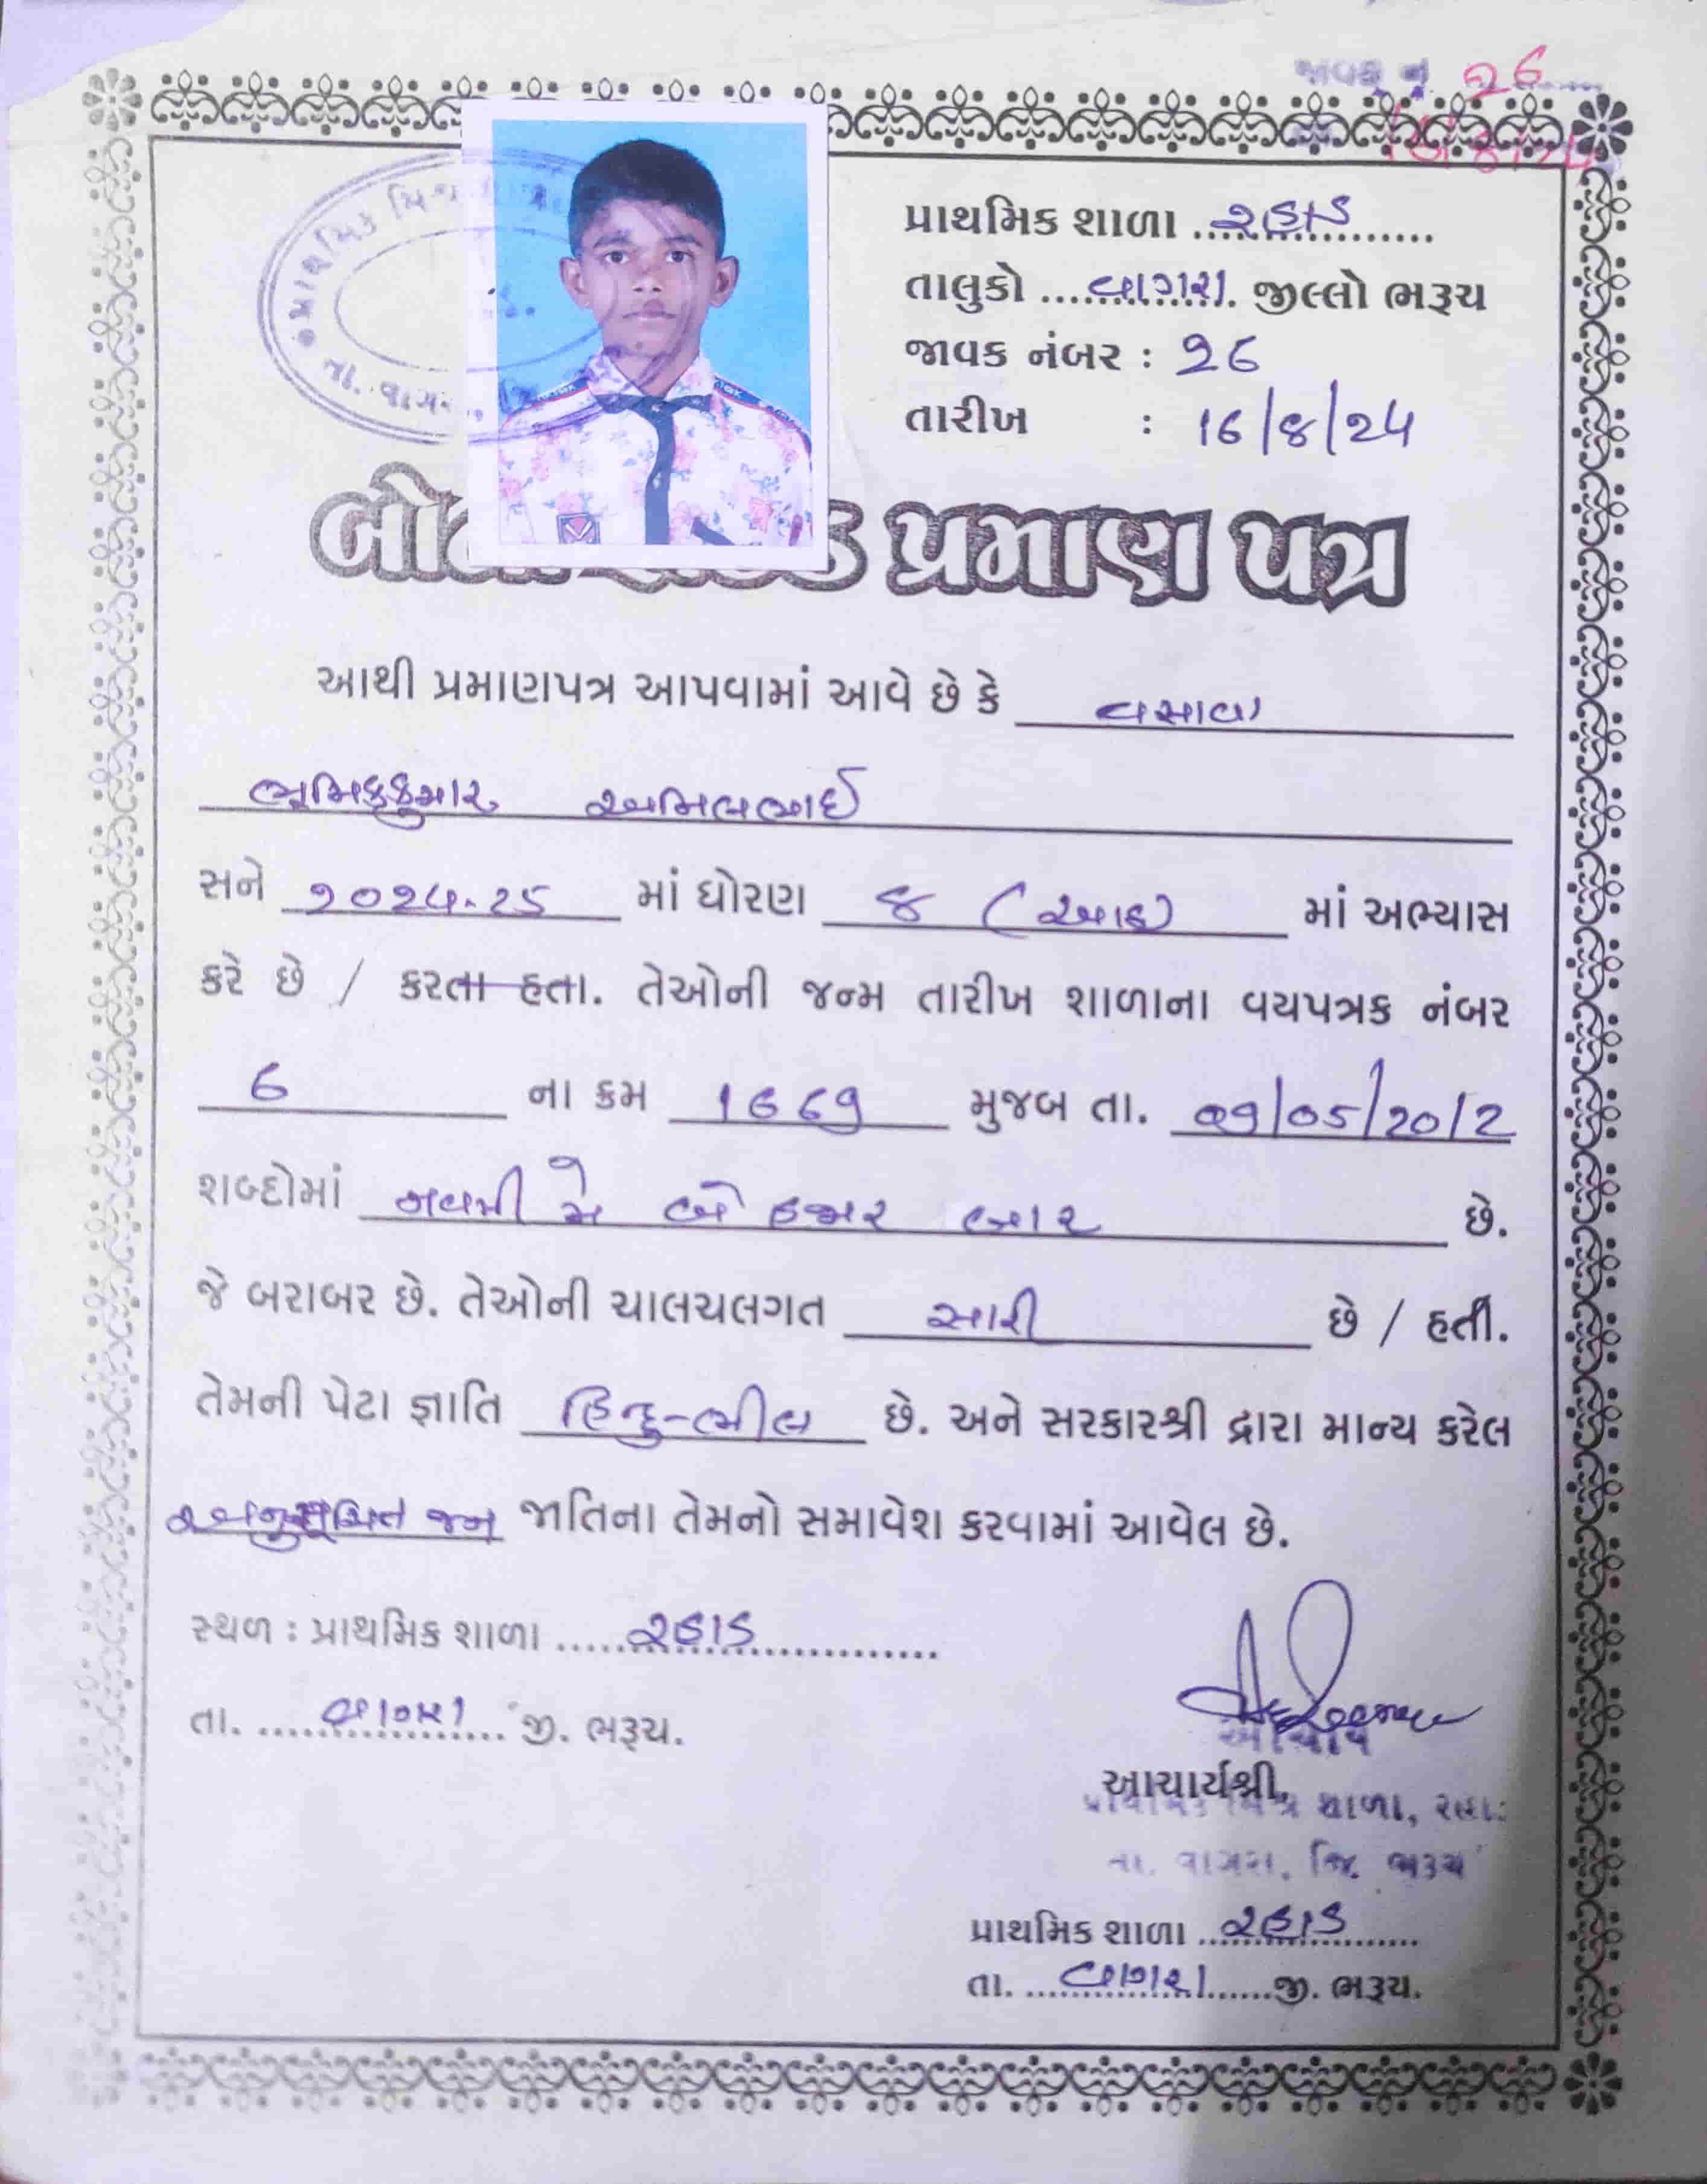 જાવક નં. ૨6
પ્રાથમિક શાળા રહાડ
તાલુકો વાગરા. જીલ્લો ભરૂચ
જાવક નંબર : ૨6
તારીખ : 16/8/24
પ્રમાણ પત્ર
આથી પ્રમાણપત્ર આપવામાં આવે છે કે વસાવા
ભૂમિકકુમાર અનિલભાઈ
સને ૨૦૨૪-25 માં ધોરણ ૪ (આઠ) માં અભ્યાસ
કરે છે / કરતા હતા. તેઓની જન્મ તારીખ શાળાના વયપત્રક નંબર
6 ના ક્રમ 1669 મુજબ તા. 09/05/2012
શબ્દોમાં નવમી મે બે હજાર બાર છે.
જે બરાબર છે. તેઓની ચાલચલગત સારી છે / હતી.
તેમની પેટા જ્ઞાતિ હિન્દુ-ભીલ છે. અને સરકારશ્રી દ્વારા માન્ય કરેલ
અનુસૂચિત જન જાતિના તેમનો સમાવેશ કરવામાં આવેલ છે.
સ્થળ : પ્રાથમિક શાળા રહાડ
તા. વાગરા જી. ભરૂચ.
આચાર્ય
આચાર્યશ્રી,
પ્રાથમિક મિશ્ર શાળા, રહાડ
તા. વાગરા, જિ. ભરૂચ
પ્રાથમિક શાળા રહાડ
તા. વાગરા જી. ભરૂચ.